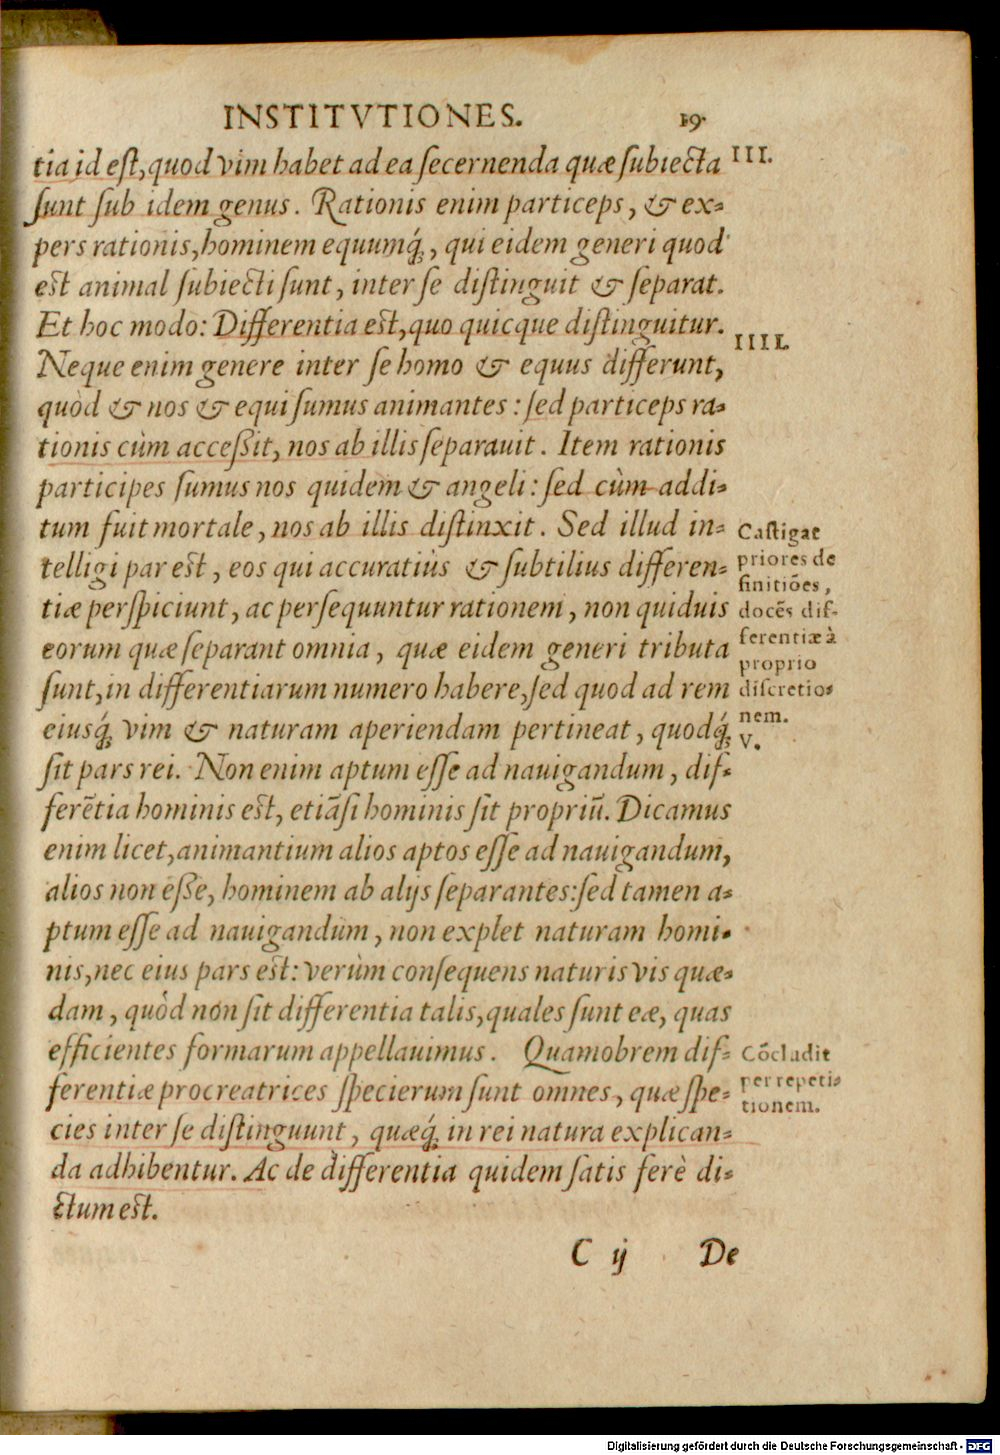 INSTITVTIONES. 19.
tia id est, quod vim habet ad ea secernenda quæ subiecta III.
sunt sub idem genus. Rationis enim particeps, & ex-
pers rationis, hominem equumq́;, qui eidem generi quod
est animal subiecti sunt, inter se distinguit & separat.
Et hoc modo: Differentia est, quo quicque distinguitur.
IIII.
Neque enim genere inter se homo & equus differunt,
quòd & nos & equi sumus animantes: sed particeps ra-
tionis cùm accessit, nos ab illis separauit. Item rationis
participes sumus nos quidem & angeli: sed cùm addi-
tum fuit mortale, nos ab illis distinxit. Sed illud in-
telligi par est, eos qui accuratiùs & subtilius differen-
tiæ perspiciunt, ac persequuntur rationem, non quiduis
eorum quæ separant omnia, quæ eidem generi tributa
sunt, in differentiarum numero habere, sed quod ad rem
eiusq́; vim & naturam aperiendam pertineat, quodq́;
sit pars rei. Non enim aptum esse ad nauigandum, dif-
ferẽtia hominis est, etiãsi hominis sit propriũ. Dicamus
enim licet, animantium alios aptos esse ad nauigandum,
alios non esse, hominem ab alijs separantes: sed tamen a-
ptum esse ad nauigandum, non explet naturam homi-
nis, nec eius pars est: verùm consequens naturis vis quæ-
dam, quòd non sit differentia talis, quales sunt eæ, quas
efficientes formarum appellauimus. Quamobrem dif-
ferentiæ procreatrices specierum sunt omnes, quæ spe-
cies inter se distinguunt, quæq́; in rei natura explican-
da adhibentur. Ac de differentia quidem satis ferè di-
ctum est.
Castigat
priores de
finitiões,
docẽs dif-
ferentiæ à
proprio
discretio-
nem.
V.
Cõcludit
per repeti-
tionem.
C ij De
Digitalisierung gefördert durch die Deutsche Forschungsgemeinschaft - DFG